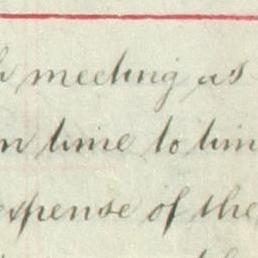 meeting as
time to tim
expense of the